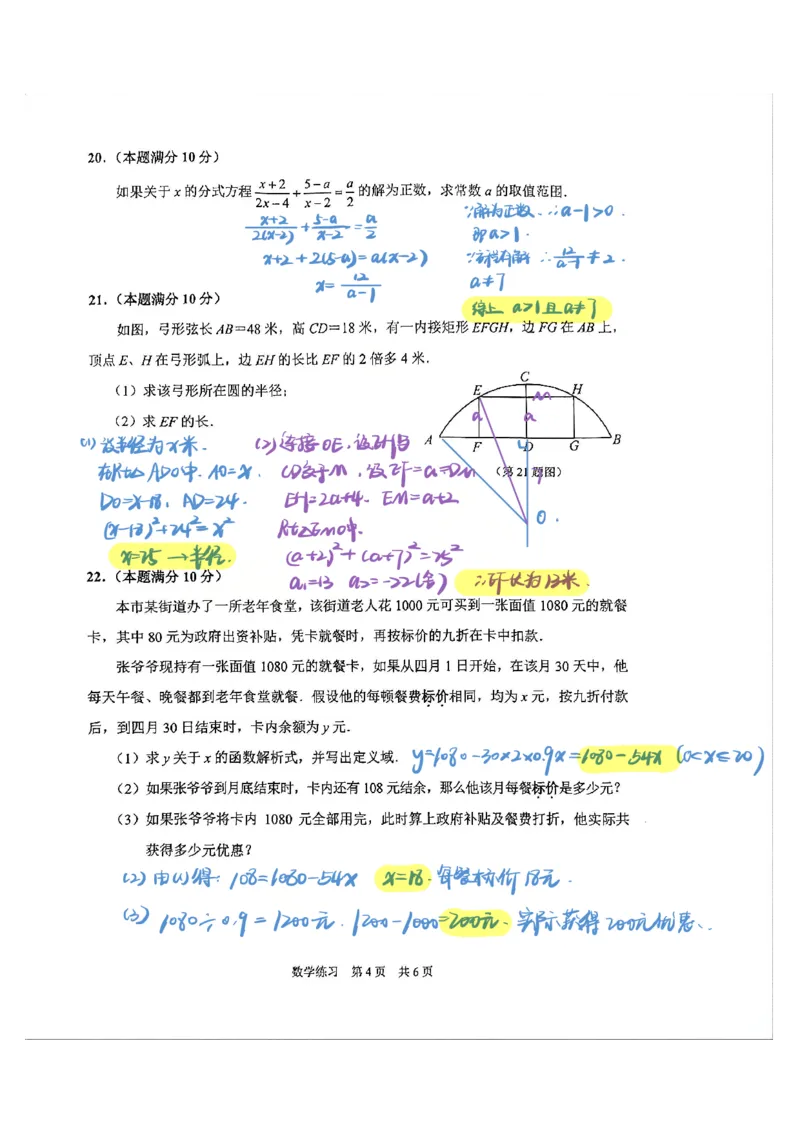 20.（本题满分 10 分）
如果关于 x 的分式方程 (x+2)/(2x-4) + (5-a)/(x-2) = a/2 的解为正数，求常数 a 的取值范围.
(x+2)/(2(x-2)) + (5-a)/(x-2) = a/2
x+2+2(5-a)=a(x-2)
x= 12/(a-1)
∵解为正数. ∴a-1>0.
即a>1.
∵方程有解 ∴ 12/(a-1) ≠2.
a≠7
综上 a>1且a≠7
21.（本题满分 10 分）
如图，弓形弦长 AB=48 米，高 CD=18 米，有一内接矩形 EFGH，边 FG 在 AB 上，
顶点 E、H 在弓形弧上，边 EH 的长比 EF 的 2 倍多 4 米.
（1）求该弓形所在圆的半径；
（2）求 EF 的长.
C
E
M
H
a
a
A
F
D
G
B
（第 21 题图）
7
O.
(1) 设半径为x米.
在Rt△ADO中. AO=x.
DO=x-18, AD=24.
(x-18)²+24²=x²
x=25 →半径.
(2)连接OE, 设EH与
CD交于M, 设EF=a=DM
EH=2a+4. EM=a+2
Rt△EMO中.
(a+2)²+(a+7)²=25²
a₁=13 a₂=-22(舍)
∴EF长为13米.
22.（本题满分 10 分）
本市某街道办了一所老年食堂，该街道老人花 1000 元可买到一张面值 1080 元的就餐
卡，其中 80 元为政府出资补贴，凭卡就餐时，再按标价的九折在卡中扣款.
张爷爷现持有一张面值 1080 元的就餐卡，如果从四月 1 日开始，在该月 30 天中，他
每天午餐、晚餐都到老年食堂就餐. 假设他的每顿餐费标价相同，均为 x 元，按九折付款
后，到四月 30 日结束时，卡内余额为 y 元.
（1）求 y 关于 x 的函数解析式，并写出定义域. y=1080-30×2×0.9x=1080-54x (0<x≤20)
（2）如果张爷爷到月底结束时，卡内还有 108 元结余，那么他该月每餐标价是多少元？
（3）如果张爷爷将卡内 1080 元全部用完，此时算上政府补贴及餐费打折，他实际共
获得多少元优惠？
(2) 由(1)得: 108=1080-54x x=18. 每餐标价18元.
(3) 1080÷0.9=1200元. 1200-1000=200元. 实际获得200元优惠.
数学练习 第 4 页 共 6 页